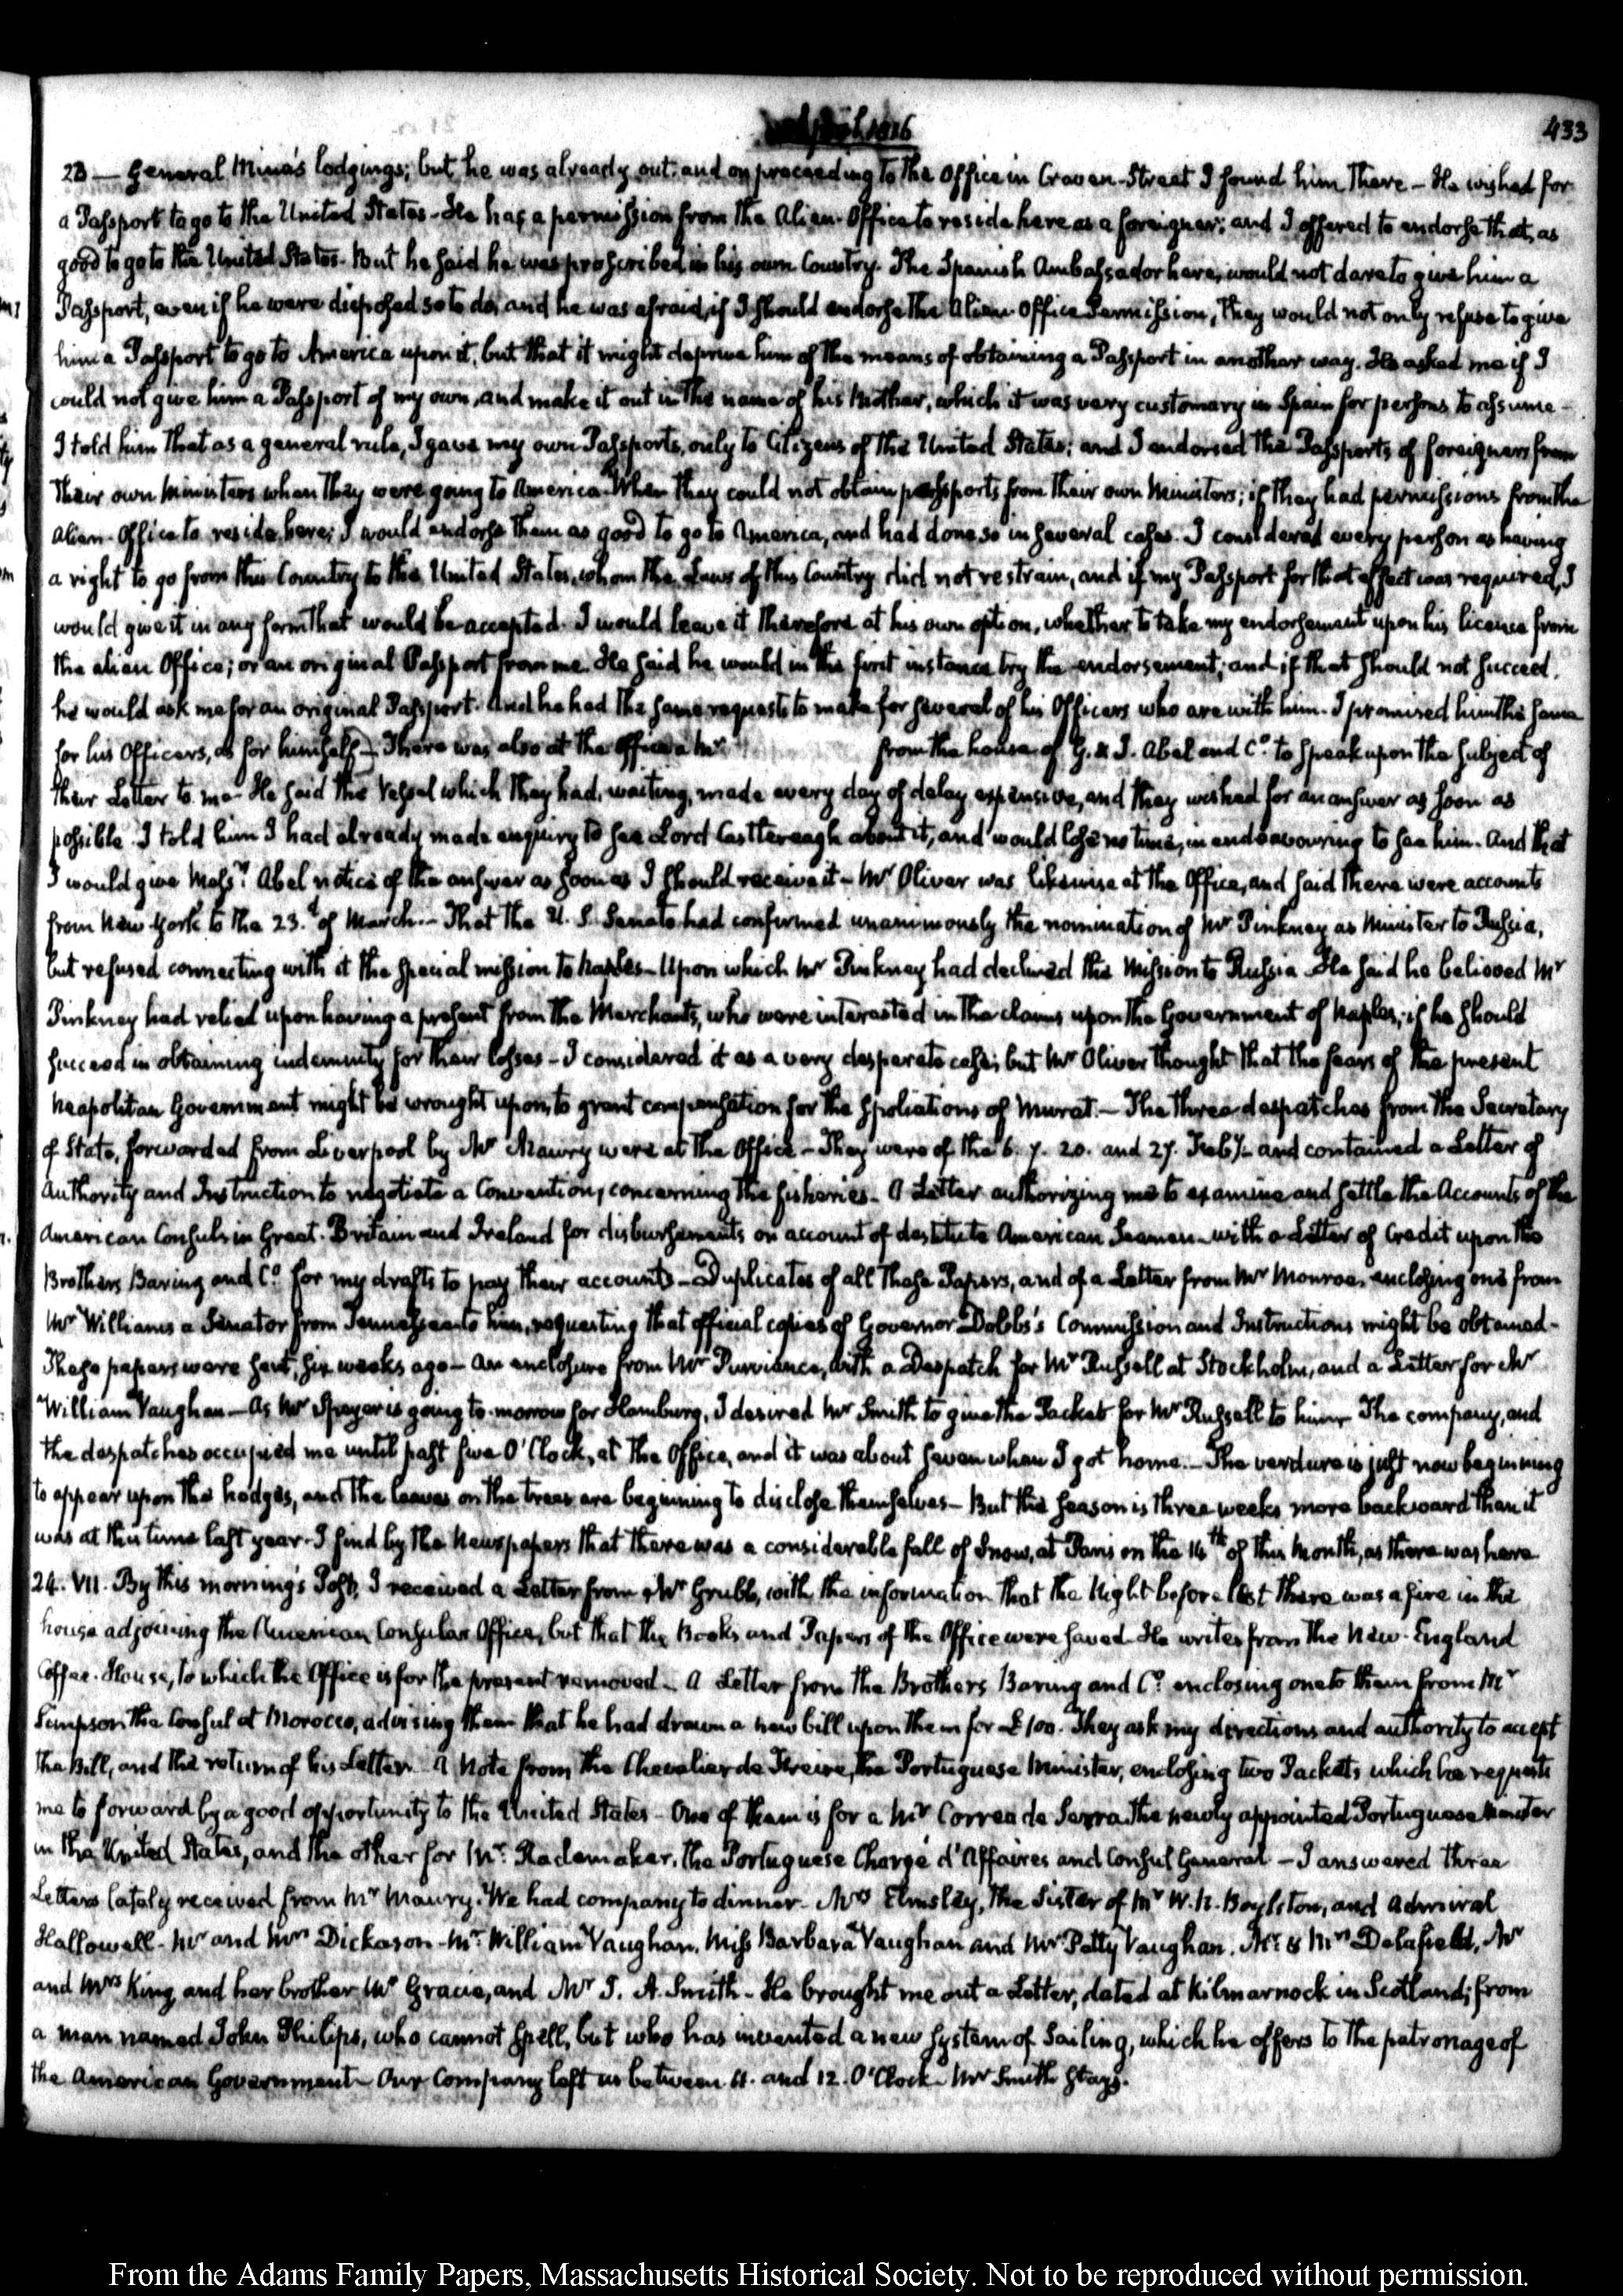 April 1816
433
23 — General Mina's lodgings; but he was already out, and on proceeding to the Office in Craven-Street I found him there — He wished for
a Passport to go to the United States — He has a permission from the Alien-Office to reside here as a foreigner; and I offered to endorse that, as
good to go to the United States. But he said he was proscribed in his own Country. The Spanish Ambassador here, would not dare to give him a
Passport, even if he were disposed so to do, and he was afraid, if I should endorse the Alien Office Permission, they would not only refuse to give
him a Passport to go to America upon it, but that it might deprive him of the means of obtaining a Passport in another way. He asked me if I
could not give him a Passport of my own, and make it out in the name of his Mother, which it was very customary in Spain for persons to assume —
I told him that as a general rule, I gave my own Passports, only to Citizens of the United States; and I endorsed the Passports of foreigners from
their own Ministers when they were going to America. When they could not obtain passports from their own Ministers; if they had permissions from the
Alien-Office to reside here; I would endorse them as good to go to America, and had done so in several cases. I considered every person as having
a right to go from this Country to the United States, whom the Laws of this Country did not restrain, and if my Passport for that effect was required, I
would give it in any form that would be accepted. I would leave it therefore at his own option, whether to take my endorsement upon his licence from
the alien Office; or an original Passport from me. He said he would in the first instance try the endorsement; and if that should not succeed,
he would ask me for an original Passport. And he had the same requests to make for several of his Officers who are with him. I promised him the same
for his Officers, as for himself — There was also at the Office a Mr from the house of G. & J. Abel and Co. to speak upon the subject of
their Letter to me. He said the Vessel which they had, waiting, made every day of delay expensive, and they wished for an answer as soon as
possible. I told him I had already made enquiry to see Lord Castlereagh about it, and would lose no time, in endeavouring to see him. And that
I would give Messrs. Abel notice of the answer as soon as I should receive it — Mr Oliver was likewise at the Office, and said there were accounts
from New-York to the 23.d of March. — That the U. S. Senate had confirmed unanimously the nomination of Mr Pinkney as Minister to Russia,
but refused connecting with it the special mission to Naples — Upon which Mr Pinkney had declined the Mission to Russia. He said he believed Mr
Pinkney had relied upon having a present from the Merchants, who were interested in the claims upon the Government of Naples, if he should
succeed in obtaining indemnity for their losses — I considered it as a very desperate case; but Mr Oliver thought that the fears of the present
Neapolitan Government might be wrought upon, to grant compensation for the spoliations of Murat. — The three despatches from the Secretary
of State, forwarded from Liverpool by Mr Maury were at the Office — They were of the 6. 7. 20. and 27. Feby and contained a Letter of
Authority and Instruction to negotiate a Convention, concerning the fisheries — A Letter authorizing me to examine and settle the Accounts of the
American Consuls in Great-Britain and Ireland for disbursements on account of destitute American Seamen — with a Letter of Credit upon the
Brothers Baring and Co. for my drafts to pay their accounts — Duplicates of all those Papers, and of a Letter from Mr Monroe, enclosing one from
Mr Williams a Senator from Tennessee to him, requesting that official copies of Governor Dobbs's Commission and Instructions might be obtained —
These papers were sent, six weeks ago — An enclosure from Mr Purviance, with a Despatch for Mr Russell at Stockholm, and a Letter for Mr
William Vaughan — As Mr Speyer is going to-morrow for Hamburg, I desired Mr Smith to give the Packet for Mr Russell to him. The company, and
the despatches occupied me until past five O'Clock, at the Office, and it was about seven when I got home. — The verdure is just now beginning
to appear upon the hedges, and the leaves on the trees are beginning to disclose themselves — But the season is three weeks more backward than it
was at this time last year. I find by the Newspapers that there was a considerable fall of Snow, at Paris on the 14th of this Month, as there was here.
24. VII. By this morning's Post, I received a Letter from Mr Grubb, with the information that the Night before last there was a fire in the
house adjoining the American Consular Office, but that the Books and Papers of the Office were saved. He writes from the New-England
Coffee-House, to which the Office is for the present removed — A Letter from the Brothers Baring and Co. enclosing one to them from Mr
Simpson the Consul at Morocco, advising them that he had drawn a new bill upon them for £100. They ask my directions and authority to accept
the Bill, and the return of his Letter. A Note from the Chevalier de Freire, the Portuguese Minister, enclosing two Packets which he requests
me to forward by a good opportunity to the United States — One of them is for a Mr Correa de Serra the newly appointed Portuguese Minister
in the United States, and the other for Mr. Rademaker, the Portuguese Chargé d'Affaires and Consul General — I answered three
Letters lately received from Mr Maury. We had company to dinner. Mrs Elmsley, the Sister of Mr W. N. Boylston, and Admiral
Hallowell — Mr and Mrs Dickason — Mr. William Vaughan, Miss Barbara Vaughan and Mr Petty Vaughan. Mr. & Mrs Delafield, Mr
and Mrs King and her brother Mr Gracie, and Mr J. A. Smith — He brought me out a Letter, dated at Kilmarnock in Scotland; from
a man named John Philips, who cannot spell, but who has invented a new system of Sailing, which he offers to the patronage of
the American Government. Our Company left us between 11. and 12. O'Clock. Mr Smith stays.
From the Adams Family Papers, Massachusetts Historical Society. Not to be reproduced without permission.